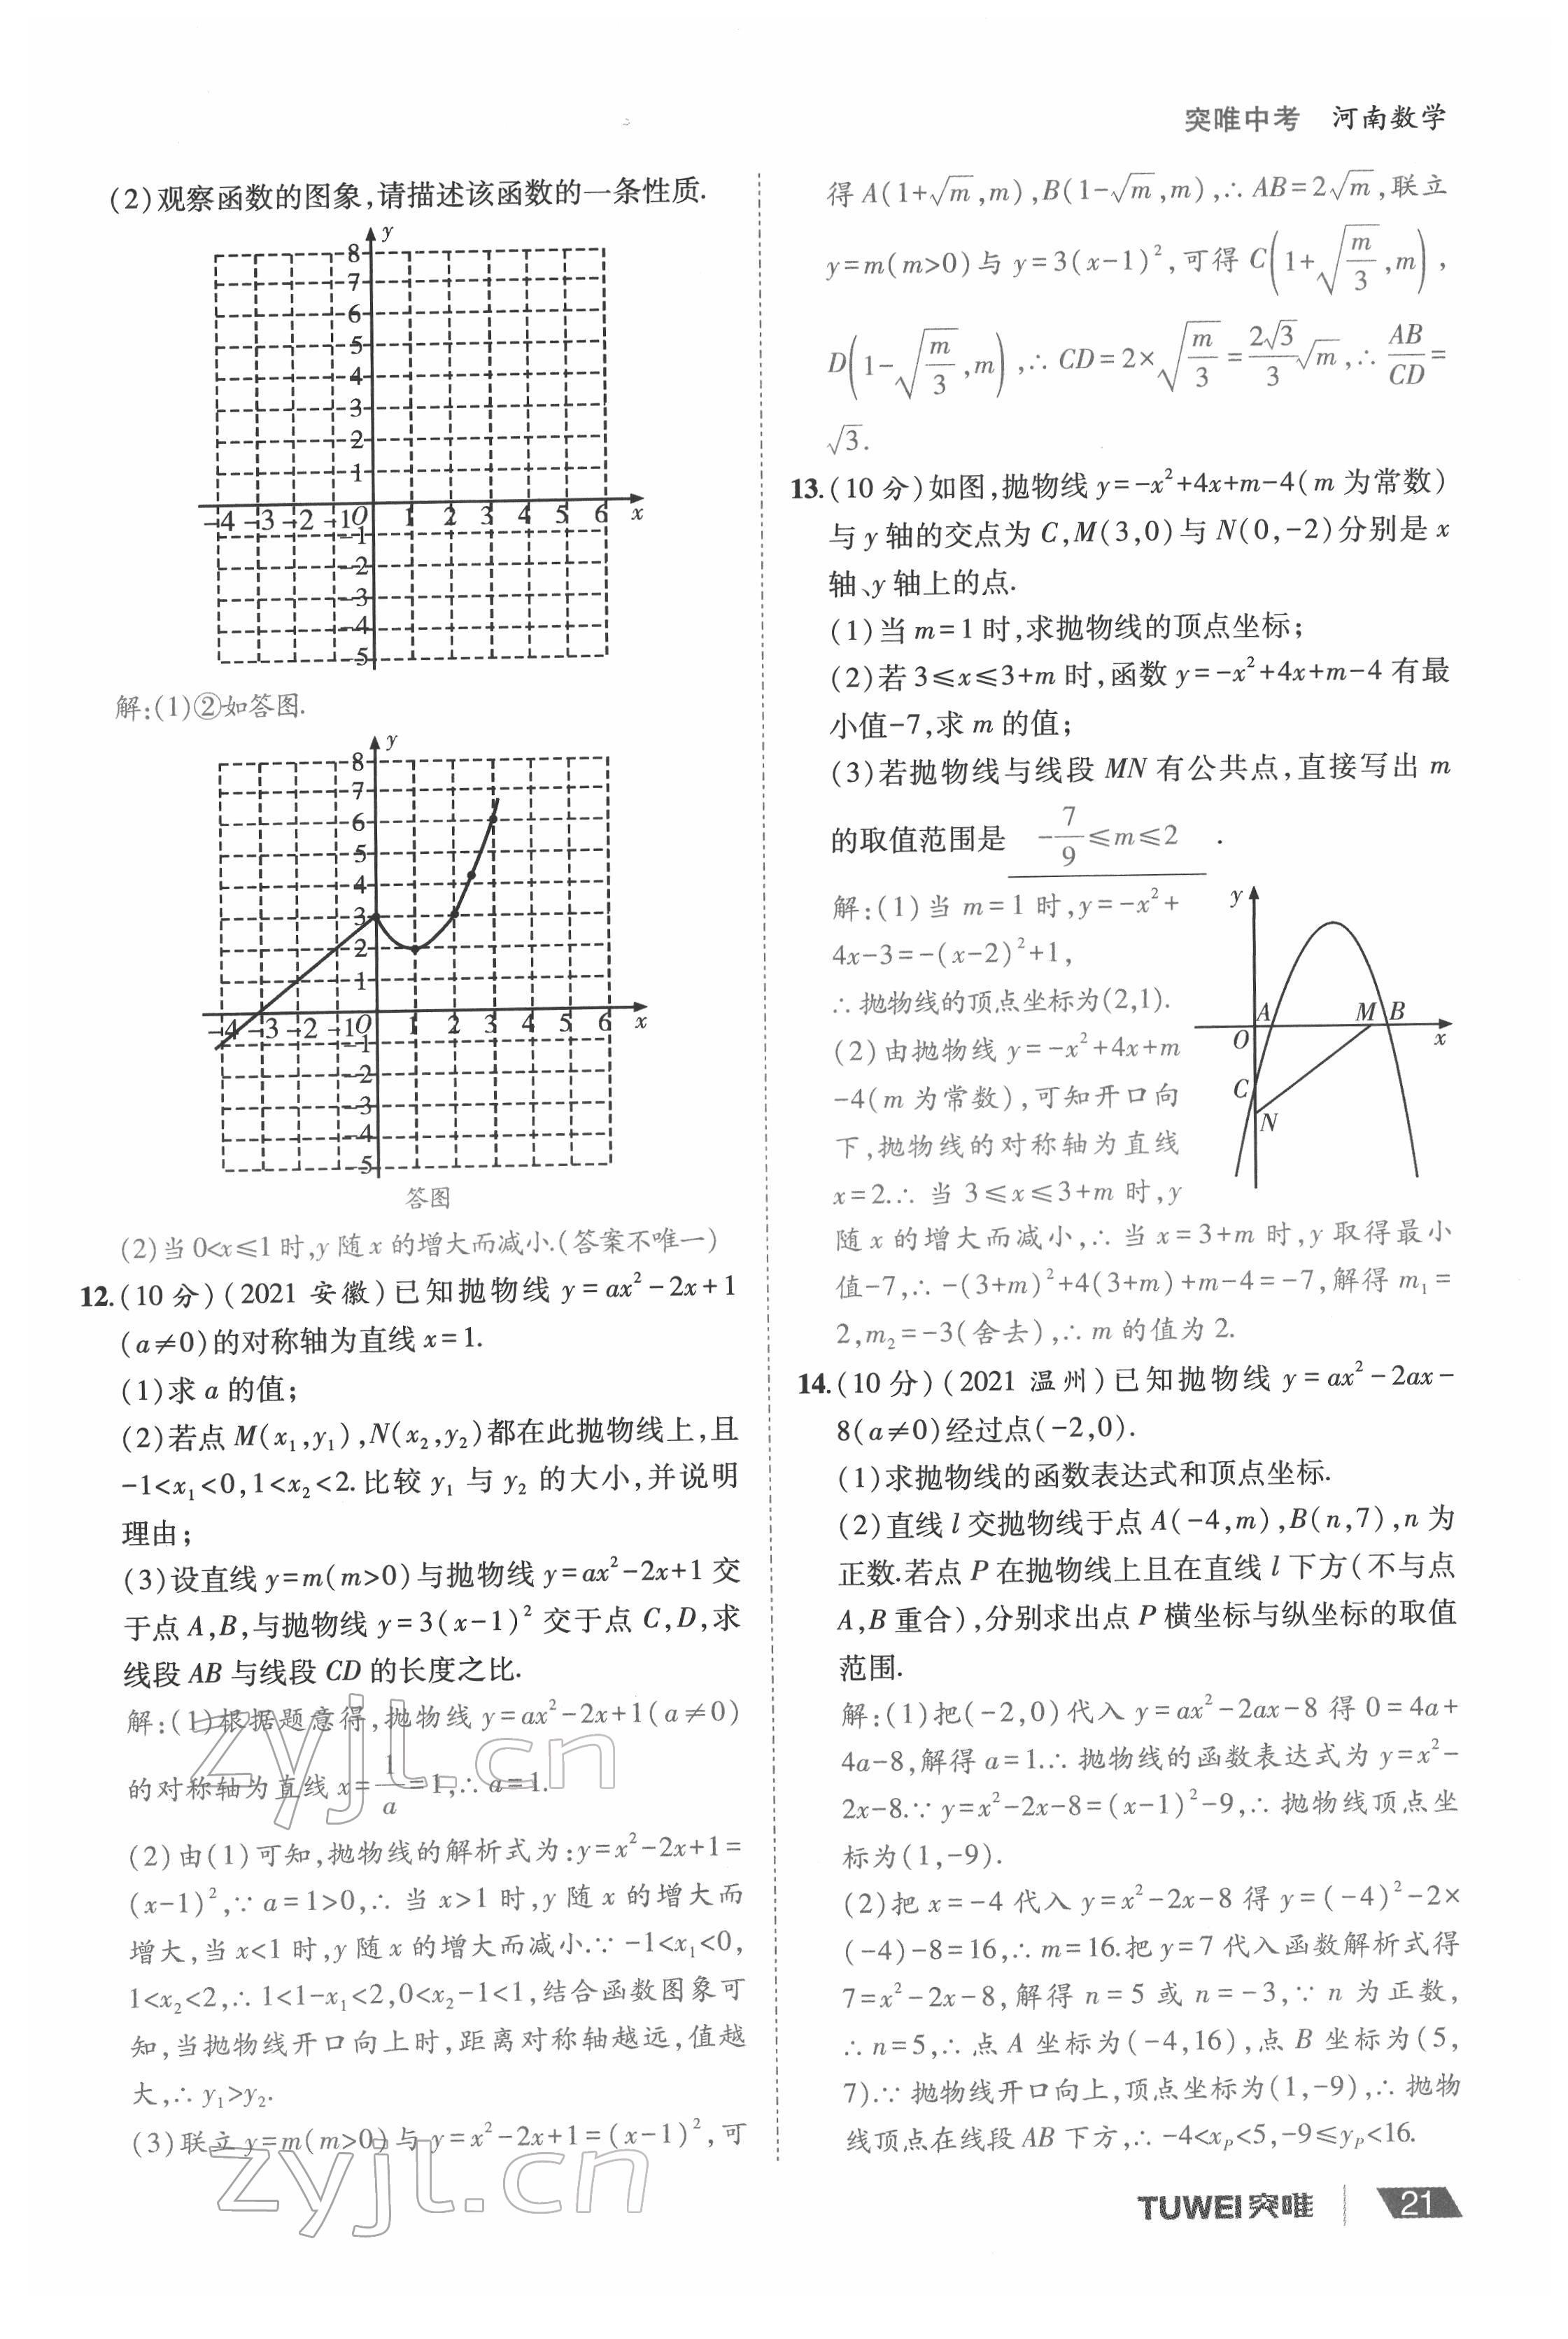 突唯中考 河南数学
(2)观察函数的图象,请描述该函数的一条性质.
y
8
7
6
5
4
3
2
1
-4 -3 -2 -1 O 1 2 3 4 5 6 x
-1
-2
-3
-4
-5
解:(1)②如答图.
y
8
7
6
5
4
3
2
1
-4 -3 -2 -1 O 1 2 3 4 5 6 x
-1
-2
-3
-4
-5
答图
(2)当 0<x≤1 时,y 随 x 的增大而减小.(答案不唯一)
12.(10 分)(2021 安徽)已知抛物线 y=ax²-2x+1
(a≠0)的对称轴为直线 x=1.
(1)求 a 的值;
(2)若点 M(x₁,y₁),N(x₂,y₂)都在此抛物线上,且
-1<x₁<0,1<x₂<2.比较 y₁ 与 y₂ 的大小,并说明
理由;
(3)设直线 y=m(m>0)与抛物线 y=ax²-2x+1 交
于点 A,B,与抛物线 y=3(x-1)² 交于点 C,D,求
线段 AB 与线段 CD 的长度之比.
解:(1)根据题意得,抛物线 y=ax²-2x+1(a≠0)
的对称轴为直线 x=1/a=1,∴ a=1.
(2)由(1)可知,抛物线的解析式为:y=x²-2x+1=
(x-1)²,∵ a=1>0,∴ 当 x>1 时,y 随 x 的增大而
增大,当 x<1 时,y 随 x 的增大而减小.∵ -1<x₁<0,
1<x₂<2,∴ 1<1-x₁<2,0<x₂-1<1,结合函数图象可
知,当抛物线开口向上时,距离对称轴越远,值越
大,∴ y₁>y₂.
(3)联立 y=m(m>0)与 y=x²-2x+1=(x-1)²,可
得 A(1+√m,m),B(1-√m,m),∴ AB=2√m,联立
y=m(m>0)与 y=3(x-1)²,可得 C(1+√(m/3),m),
D(1-√(m/3),m),∴ CD=2×√(m/3)=(2√3/3)√m,∴ AB/CD=
√3.
13.(10 分)如图,抛物线 y=-x²+4x+m-4(m 为常数)
与 y 轴的交点为 C,M(3,0)与 N(0,-2)分别是 x
轴、y 轴上的点.
(1)当 m=1 时,求抛物线的顶点坐标;
(2)若 3≤x≤3+m 时,函数 y=-x²+4x+m-4 有最
小值-7,求 m 的值;
(3)若抛物线与线段 MN 有公共点,直接写出 m
的取值范围是 -7/9≤m≤2 .
解:(1)当 m=1 时,y=-x²+
4x-3=-(x-2)²+1,
∴ 抛物线的顶点坐标为(2,1).
(2)由抛物线 y=-x²+4x+m
-4(m 为常数),可知开口向
下,抛物线的对称轴为直线
x=2.∴ 当 3≤x≤3+m 时,y
y
A M B
O x
C
N
随 x 的增大而减小,∴ 当 x=3+m 时,y 取得最小
值-7,∴ -(3+m)²+4(3+m)+m-4=-7,解得 m₁=
2,m₂=-3(舍去),∴ m 的值为 2.
14.(10 分)(2021 温州)已知抛物线 y=ax²-2ax-
8(a≠0)经过点(-2,0).
(1)求抛物线的函数表达式和顶点坐标.
(2)直线 l 交抛物线于点 A(-4,m),B(n,7),n 为
正数.若点 P 在抛物线上且在直线 l 下方(不与点
A,B 重合),分别求出点 P 横坐标与纵坐标的取值
范围.
解:(1)把(-2,0)代入 y=ax²-2ax-8 得 0=4a+
4a-8,解得 a=1.∴ 抛物线的函数表达式为 y=x²-
2x-8.∵ y=x²-2x-8=(x-1)²-9,∴ 抛物线顶点坐
标为(1,-9).
(2)把 x=-4 代入 y=x²-2x-8 得 y=(-4)²-2×
(-4)-8=16,∴ m=16.把 y=7 代入函数解析式得
7=x²-2x-8,解得 n=5 或 n=-3,∵ n 为正数,
∴ n=5,∴ 点 A 坐标为(-4,16),点 B 坐标为(5,
7).∵ 抛物线开口向上,顶点坐标为(1,-9),∴ 抛物
线顶点在线段 AB 下方,∴ -4<xₚ<5,-9≤yₚ<16.
zyjl.cn
zyjl.cn
TUWEI突唯 21